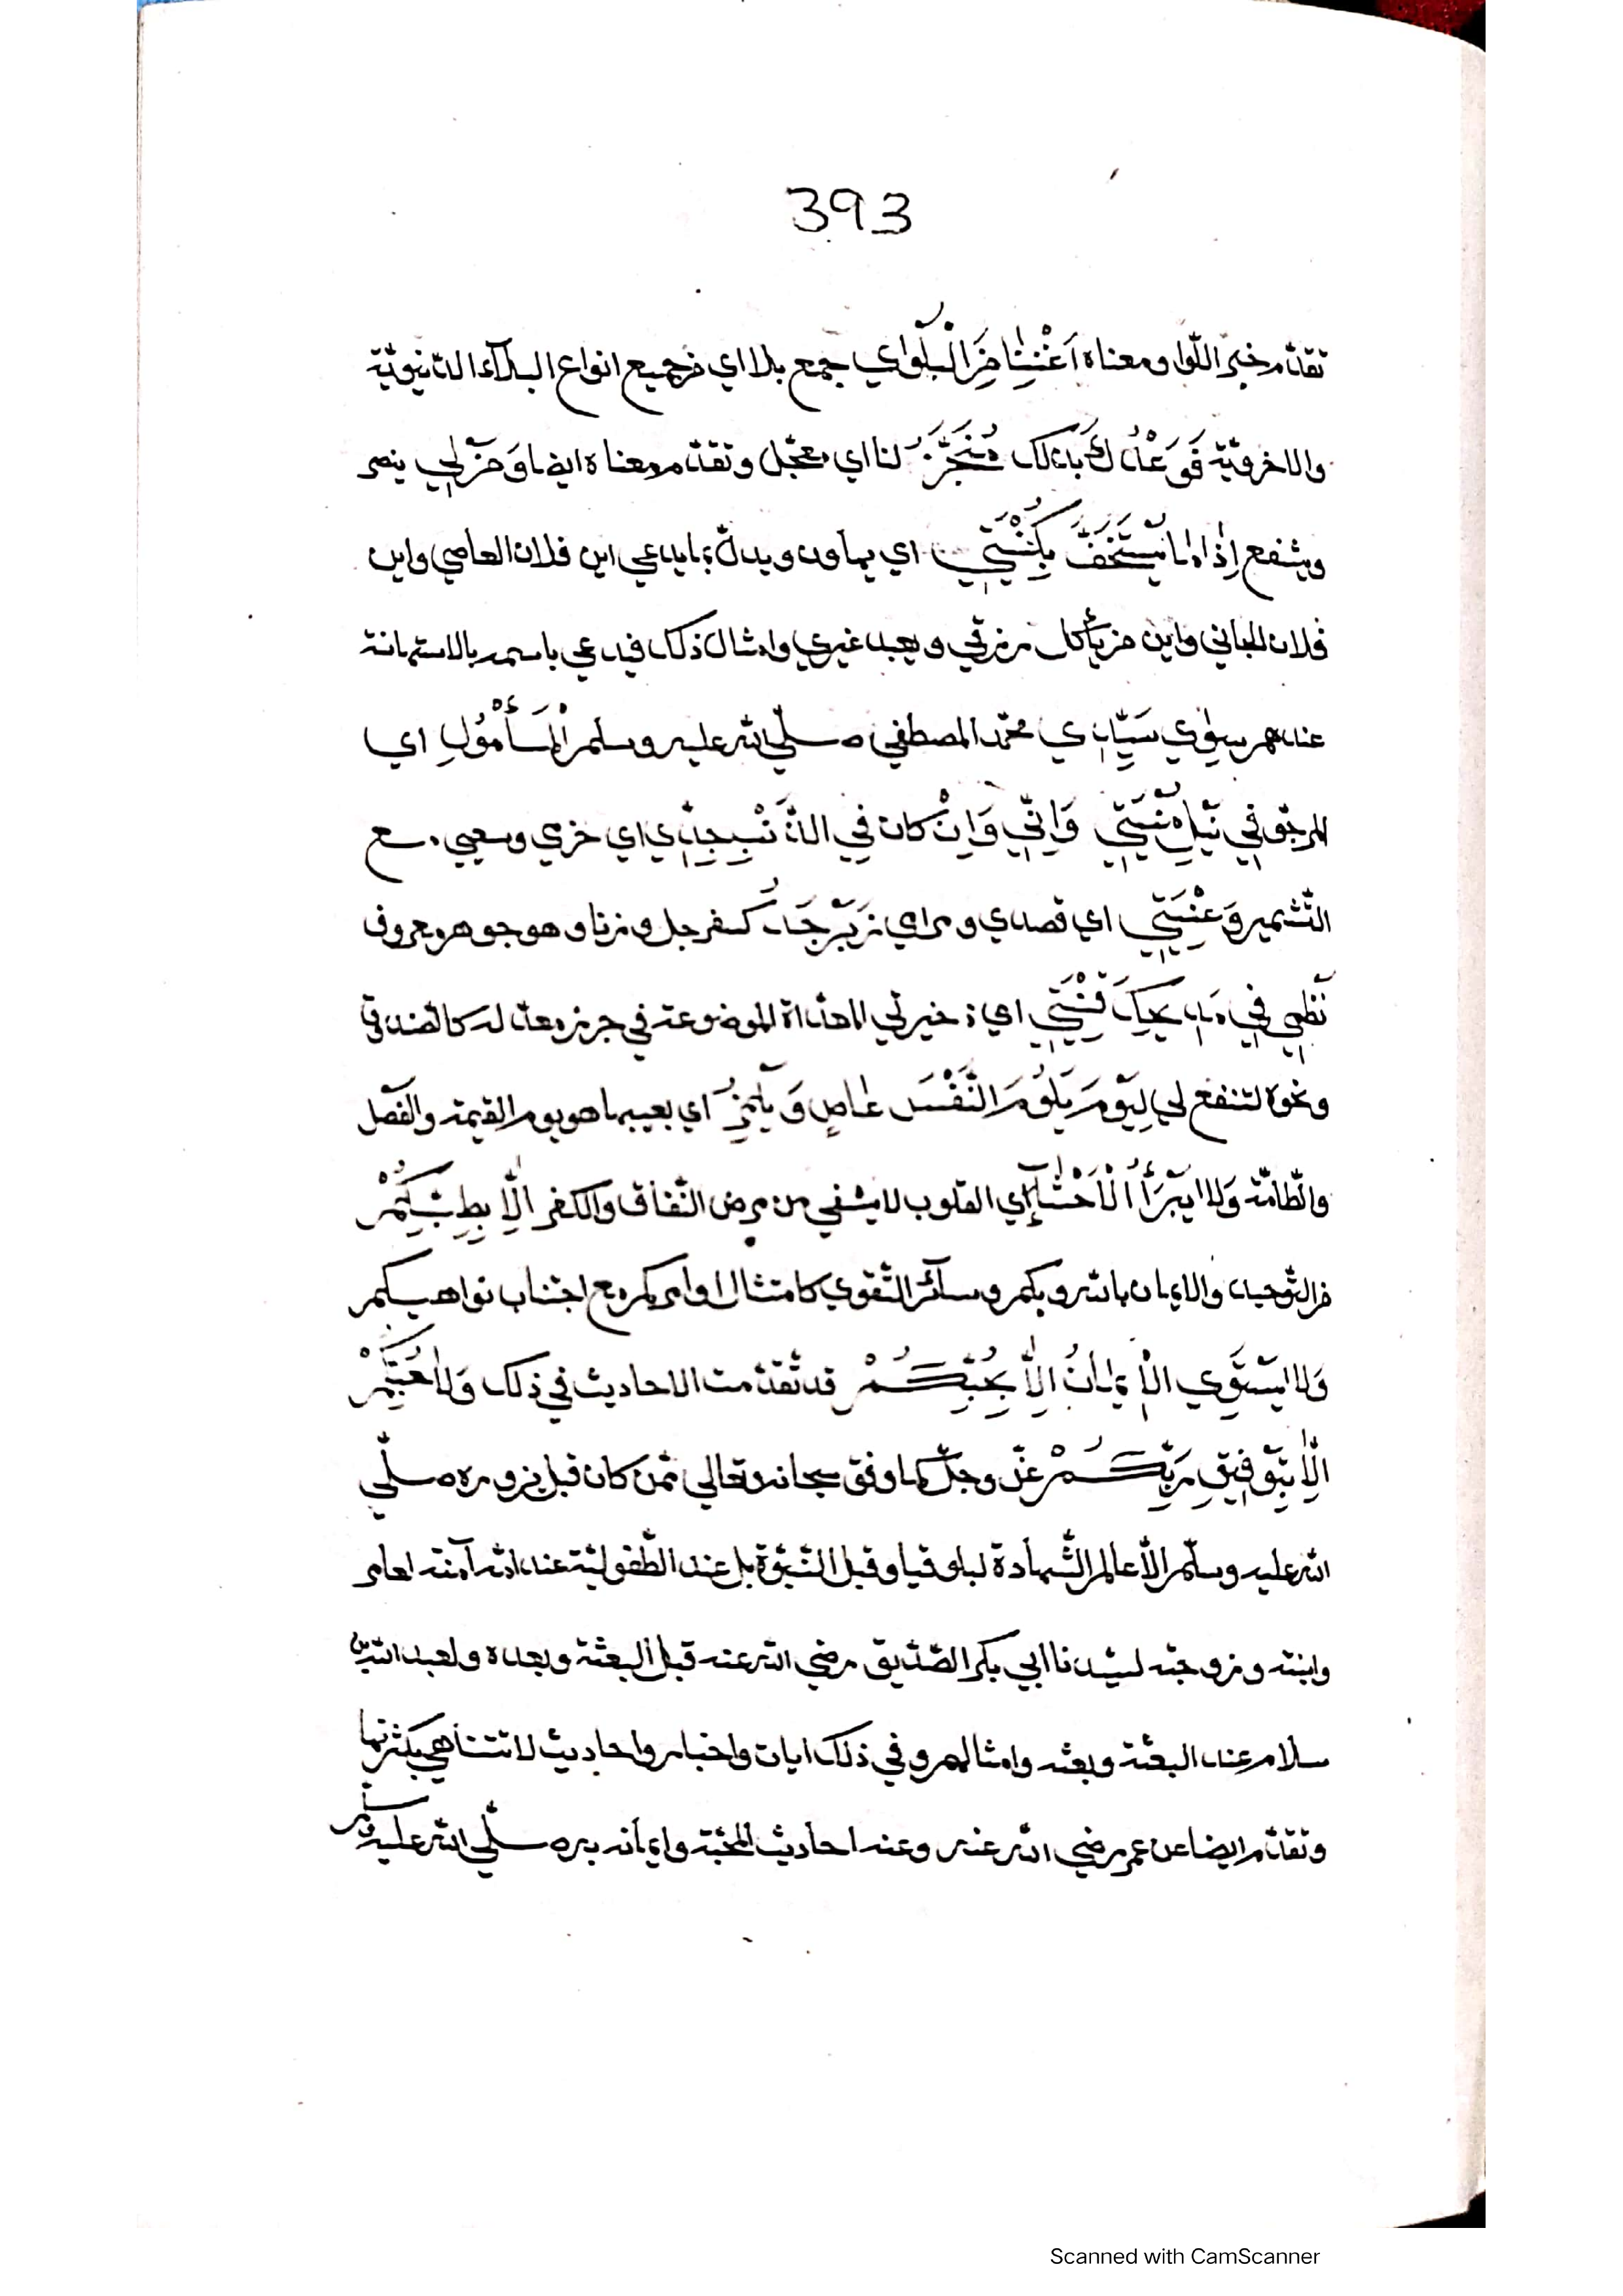 393
تقدّم خبر اللّوا ومعناه أَغْثَنْا مِنَ الْبَلْوٰاي جمع بلا اي من جميع انواع البلآء الدّنيويّة
والاخرويّة فَوَعْدُكَ بِذٰلك مُنَجَّزٌ لنا اي معجّل وتقدّم معناه ايضا وَمَنْ لي ينصر
ويشفع إِذٰا مٰا يُسْتَخَفُّ بِكُنْيَتِي اي يهاون ويدلّ بما يدعي اين فلان العاصي واين
فلان الجاني واين من يأكل رزقي ويعبد غيري وامثال ذلك فيدعي باسمه بالاستهانة
عندهم سِوٰي سَيِّدِي محمّد المصطفي صلّي الله عليه وسلّم الْمَأْمُولِ اي
المرجّو فِي نَيْلِ مُنْيَتِي وَإِنِّي وَإِنْ كان فِي الذَّنْبِ جِدِّي اي حزمي وسعيي مع
التّشمير وَعُنْيَتِي اي قصدي ومرامي زَبَرْجَدُ كسفرجل وزنا وهو جوهر معروف
نَظْمِي فِي مَدِيحِكَ قُنْيَتِي اي ذخيرتي المعدّاة الموضوعة في حرز معدّ له كالصّندوق
ونحوه لتنفع لي لِيَوْمَ يَلُومُ النَّفْسَ عٰاصٍ وَيَلْمِزُ اي يعيبها هو يوم القيمة والفصل
والطّامّة وَلاٰ يَبْرَأُ الْأَحْشٰآءُ اي القلوب لا يشفي من مرض النّفاق والكفر إِلّٰا بِطِبِّكُمْ
من التّوحيد والايمان بالله وبكم وسآئر التّقوي كامتثال اوامركم مع اجتناب نواهيكم
وَلاٰ يَسْتَوِي الْإِيمٰانُ إِلّٰا بِحُبِّكُمْ قد تقدّمت الاحاديث في ذلك وَلاٰ حُبُّكُمْ
إِلّٰا بِتَوْفِيقِ رَبِّكُمْ عزّ وجلّ كما وفق سبحانه وتعالي ثمن كان قبل بزوره صلّي
الله عليه وسلّم الأعالم الشّهادة وقبل النّبوّة بل عند الطّفوليّة عند امّه آمنة
وابنته وزوجته لسيّدنا ابي بكر الصّدّيق رضي الله عنه قبل البعثة وبعده ولعبد الله بن
سلام عند البعثة وبعثه وامثالهم وفي ذلك ايات واخبار واحاديث لا تتناهي بكثرتها
وتقدّم ايضا عن عمر رضي الله عنه وعند احاديث المحبّة وايمانه بره صلّي الله عليه وسلّم
Scanned with CamScanner